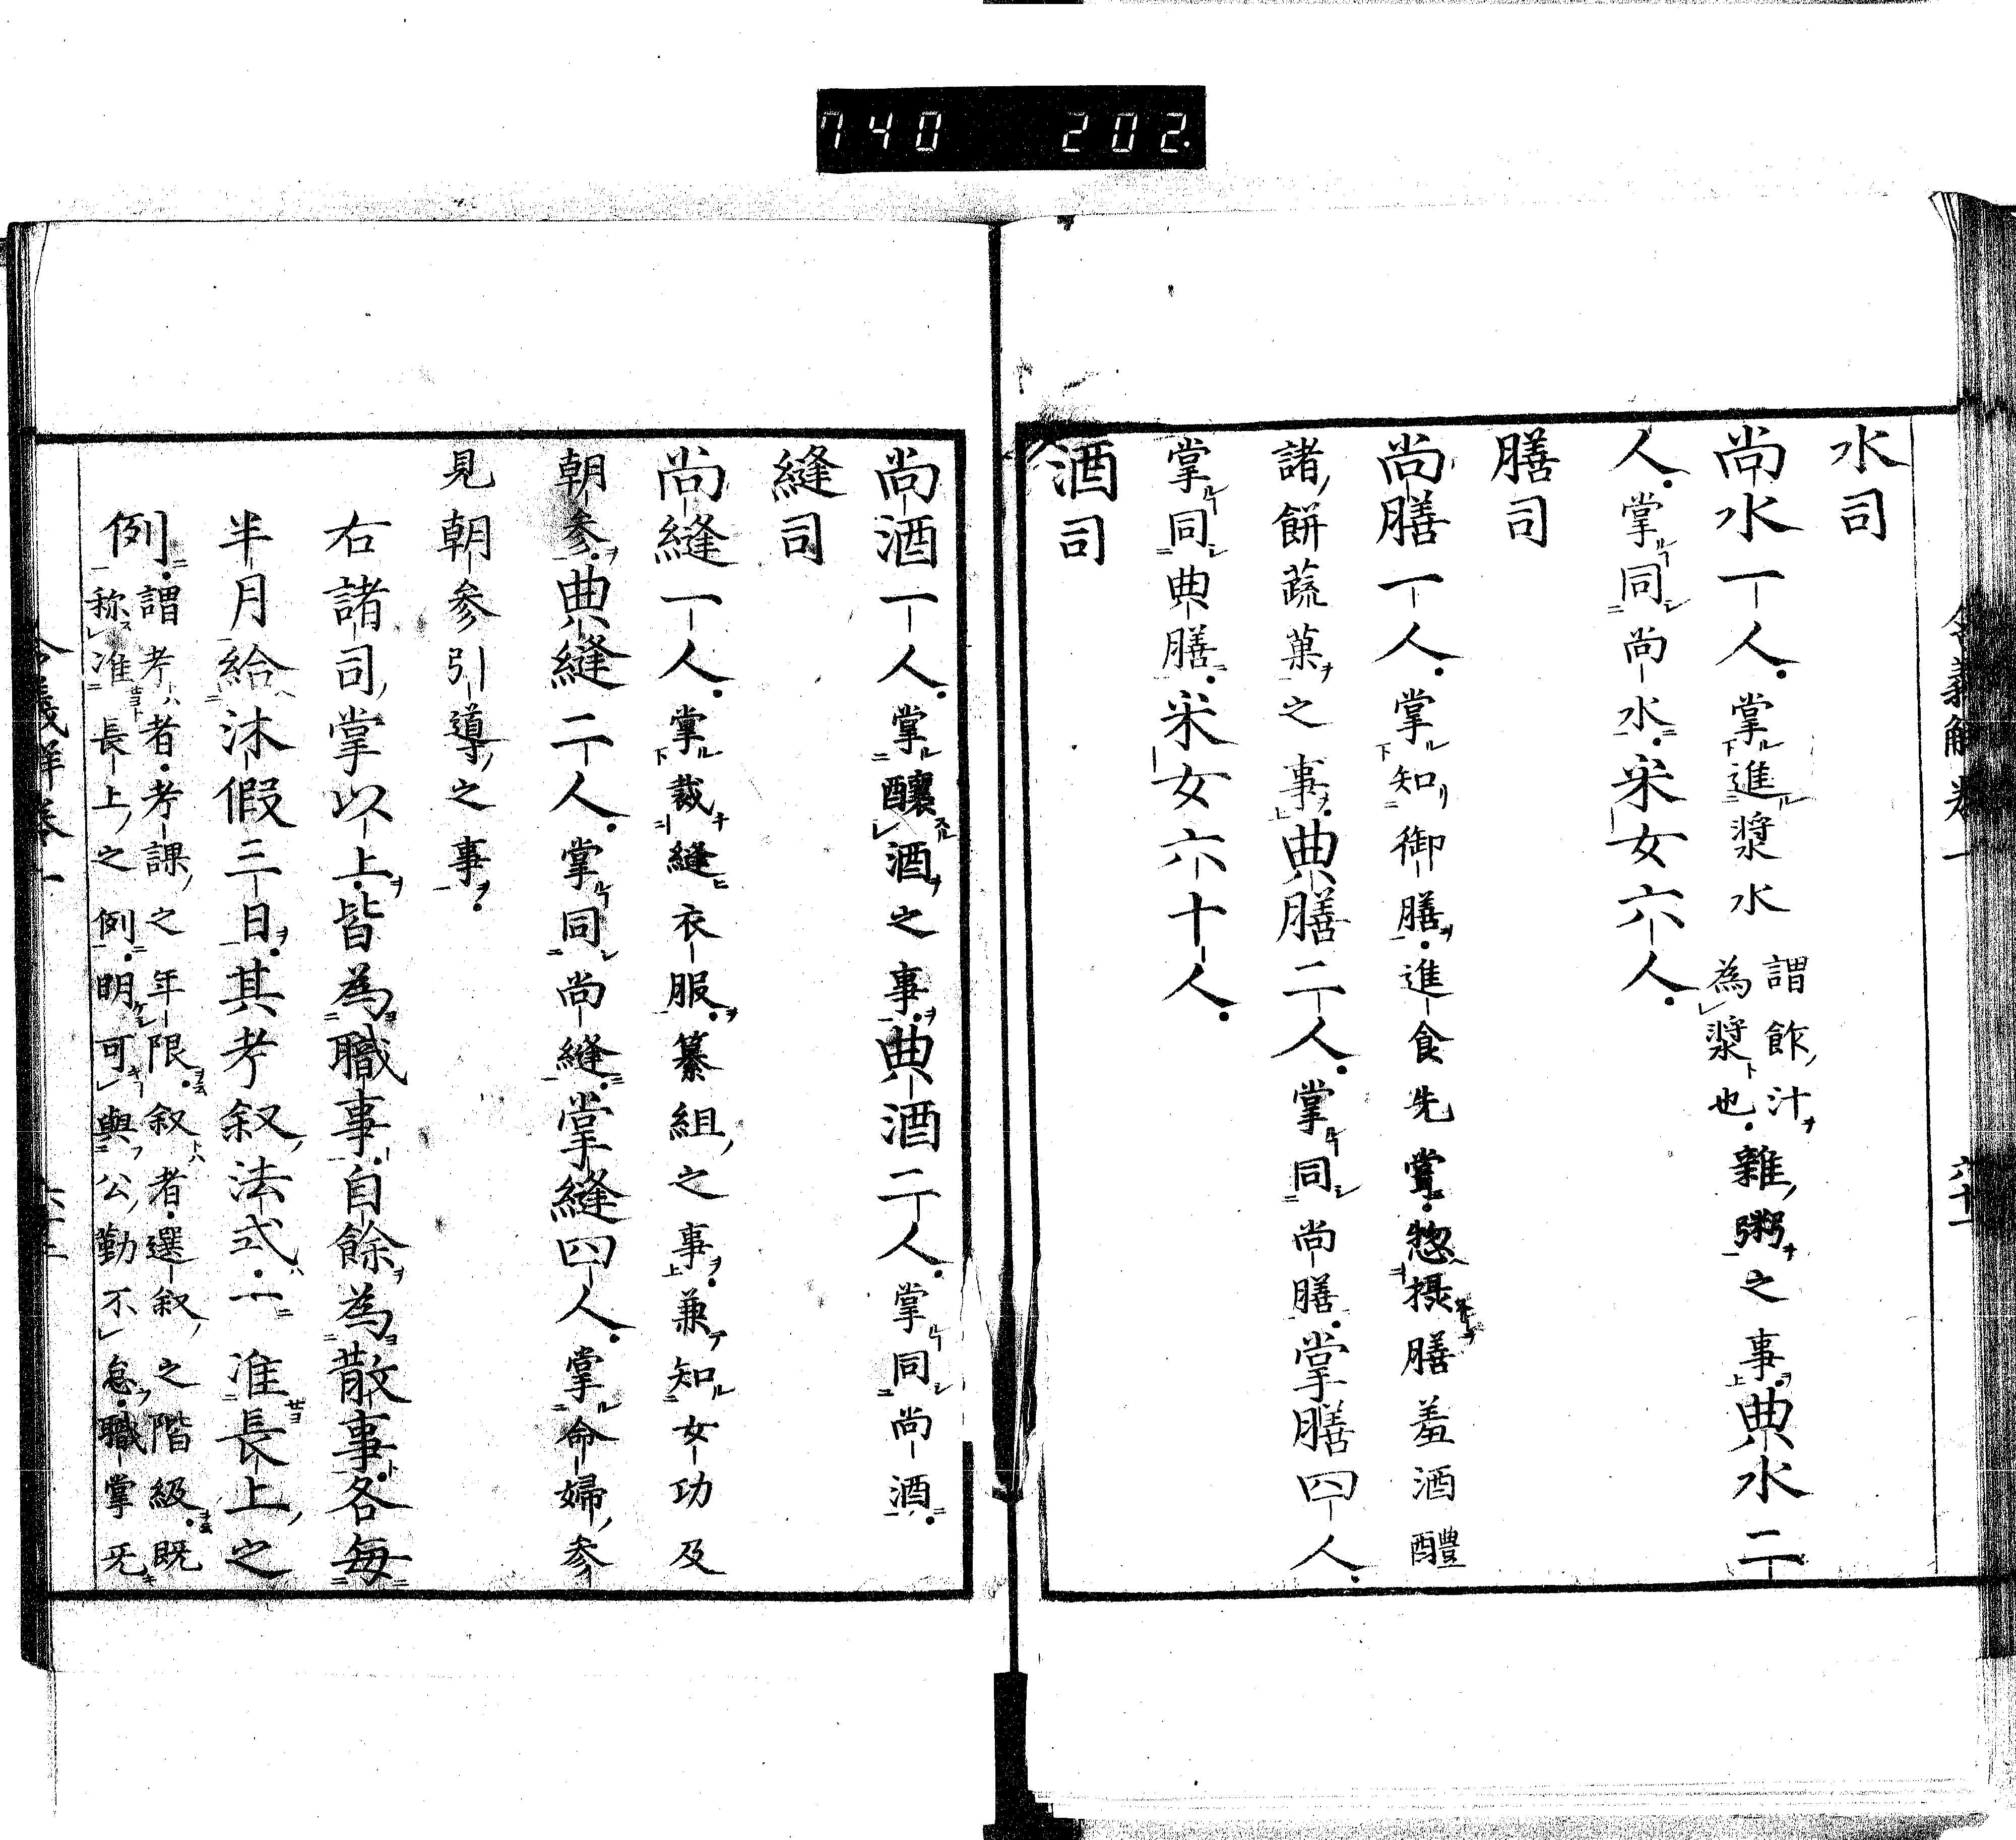 740 202.
水司
尚水一人。掌進漿水謂飵汁為漿也。雜粥之事。典水二
人。掌同尚水。采女六人。
膳司
尚膳一人。掌知御膳。進食先嘗。惣摂膳羞酒醴
諸餅蔬菓之事。典膳二人。掌同尚膳。掌膳四人。
掌同典膳。采女六十人。
酒司
尚酒一人。掌釀酒之事。典酒二人。掌同尚酒。
縫司
尚縫一人。掌裁縫衣服。纂組之事。兼知女功及
朝参。典縫二人。掌同尚縫。掌縫四人。掌命婦参
見朝参引導之事。
右諸司掌以上。皆為職事。自餘為散事。各毎
半月給沐假三日。其考叙法式。一准長上之
例。謂考者。考課之年限。叙者。選叙之階級。既
称准長上之例。明可與公勤不怠。職掌旡